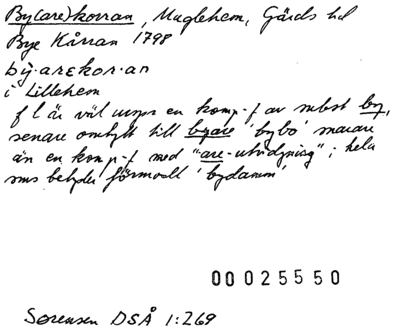 By(are)korran, Maglehem, Gärds hd
Bye Kårran 1798
bỳ·arɛkor·an
i Lillehem
f l är väl urspr en komp-f av subst by,
senare omtytt till byare 'bybo' snarare
än en komp-f med "are-utvidgning"; hela
sms betyder förmodl 'bydamm'
00025550
Sørensen DSÅ 1:269